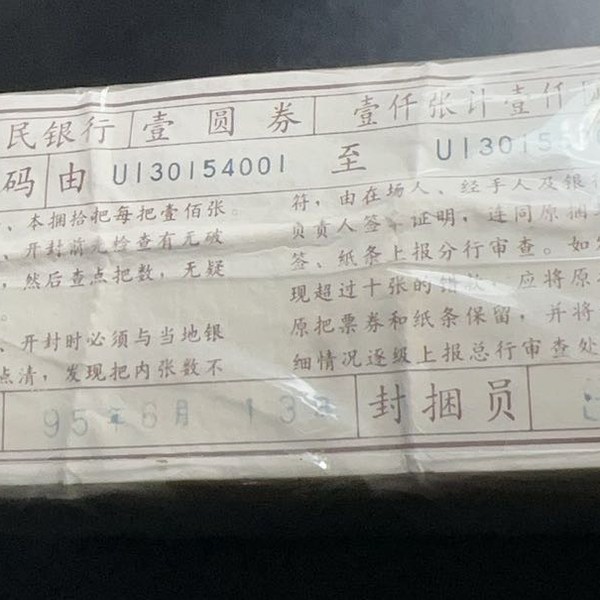 民银行 壹圆券 壹仟张计壹仟
码 由 U130154001 至 U130155
、本捆拾把每把壹佰张。
、开封前先检查有无破
，然后查点把数，无疑
。
、开封时必须与当地银
点清，发现把内张数不
符，由在场人、经手人及银行
负责人签 证明，连同原捆
签、纸条上报分行审查。如
现超过十张的错款，应将原
原把票券和纸条保留，并将
细情况逐级上报总行审查处
95年6月 13日 封捆员